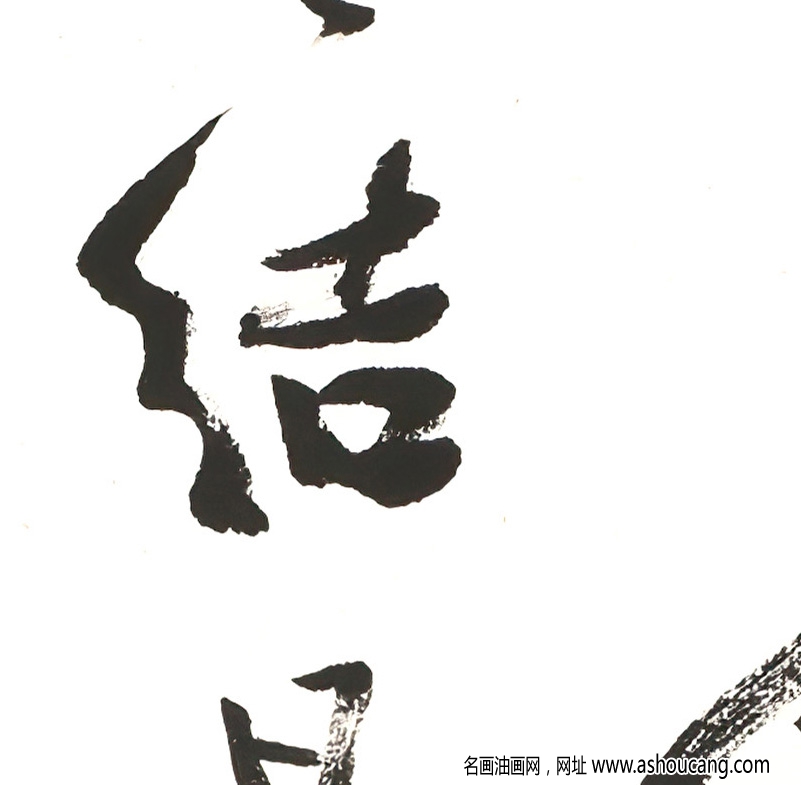 结
名画油画网，网址 www.ashoucang.com